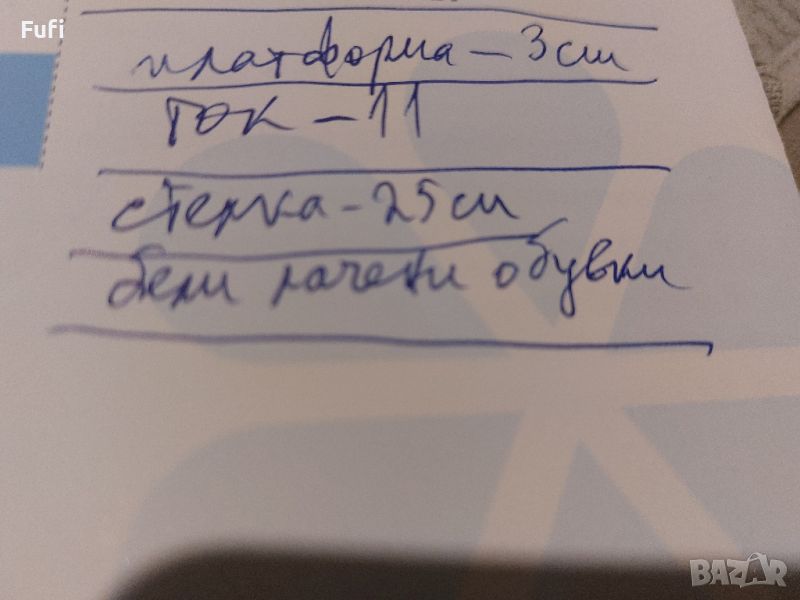 Fufi
платформа - 3 см
ток - 11
стелка - 25 см
бели лачени обувки
BAZAR